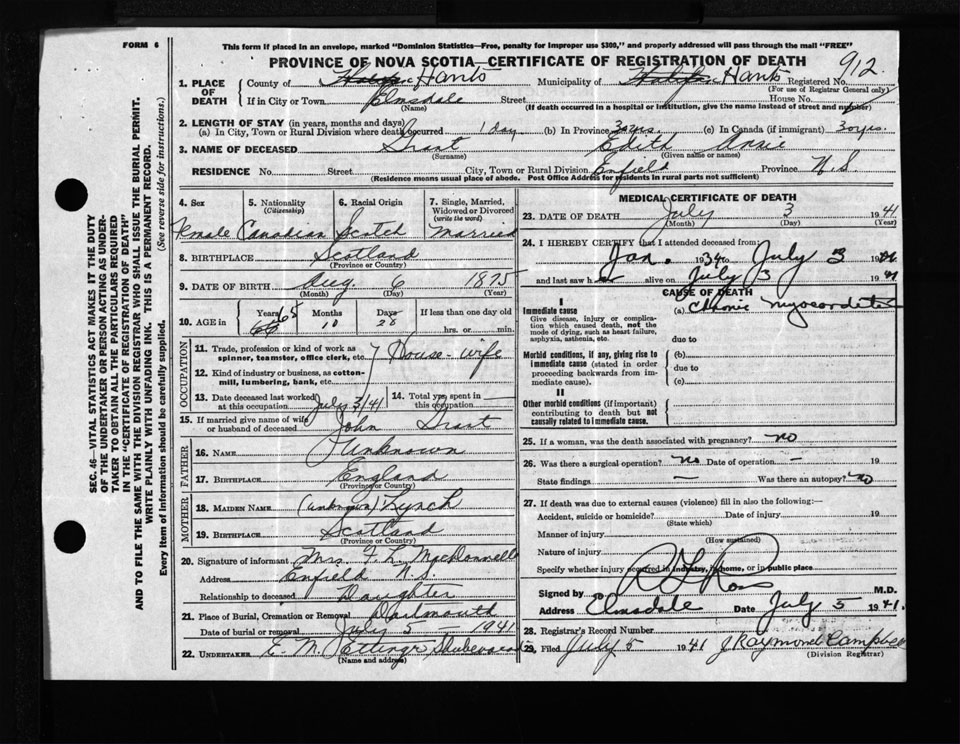 FORM 6
This form if placed in an envelope, marked "Dominion Statistics—Free, penalty for improper use $300," and properly addressed will pass through the mail "FREE"
PROVINCE OF NOVA SCOTIA—CERTIFICATE OF REGISTRATION OF DEATH
912
1. PLACE OF DEATH
County of Halifax Hants Municipality of Halifax Hants Registered No.
(For use of Registrar General only)
If in City or Town Elmsdale Street House No.
(Name) (If death occurred in a hospital or institution, give the name instead of street and number)
2. LENGTH OF STAY (in years, months and days)
(a) In City, Town or Rural Division where death occurred 1 day (b) In Province 30 yrs. (c) In Canada (if immigrant) 30 yrs.
3. NAME OF DECEASED Grant Edith Annie
(Surname) (Given name or names)
RESIDENCE No. Street City, Town or Rural Division Enfield Province N.S.
(Residence means usual place of abode. Post Office Address for residents in rural parts not sufficient)
4. Sex 5. Nationality (Citizenship) 6. Racial Origin 7. Single, Married, Widowed or Divorced (write the word)
Female Canadian Scotch Married
8. BIRTHPLACE Scotland
(Province or Country)
9. DATE OF BIRTH Aug. 6 1875
(Month) (Day) (Year)
10. AGE in Years Months Days If less than one day old
66 65 10 28 hrs. or min.
OCCUPATION
11. Trade, profession or kind of work as spinner, teamster, office clerk, etc. House-wife
12. Kind of industry or business, as cotton-mill, lumbering, bank, etc.
13. Date deceased last worked at this occupation July 3/41 14. Total yrs. spent in this occupation —
15. If married give name of wife or husband of deceased John Grant
FATHER
16. NAME Unknown
17. BIRTHPLACE England
(Province or Country)
MOTHER
18. MAIDEN NAME (unknown) Lynch
19. BIRTHPLACE Scotland
(Province or Country)
20. Signature of informant Mrs. F. L. MacDonnell
Address Enfield N.S.
Relationship to deceased Daughter
21. Place of Burial, Cremation or Removal Dartmouth
Date of burial or removal July 5 1941
22. UNDERTAKER E. M. Ettinger Shubenacadie
(Name and address)
MEDICAL CERTIFICATE OF DEATH
23. DATE OF DEATH July 3 1941
(Month) (Day) (Year)
24. I HEREBY CERTIFY that I attended deceased from:
Jan. 1934 to July 3 1941
and last saw her alive on July 3 1941
CAUSE OF DEATH
I
Immediate cause (a) Chronic myocarditis
Give disease, injury or complication which caused death, not the mode of dying, such as heart failure, asphyxia, asthenia, etc.
due to
Morbid conditions, if any, giving rise to immediate cause (stated in order proceeding backwards from immediate cause).
(b)
due to
(c)
II
Other morbid conditions (if important) contributing to death but not causally related to immediate cause.
25. If a woman, was the death associated with pregnancy? no
26. Was there a surgical operation? no Date of operation — 19
State findings — Was there an autopsy? no
27. If death was due to external causes (violence) fill in also the following:—
Accident, suicide or homicide? Date of injury 19
(State which)
Manner of injury
(How sustained)
Nature of injury
Specify whether injury occurred in industry, in home, or in public place
Signed by Ross M.D.
Address Elmsdale Date July 5 1941.
28. Registrar's Record Number
29. Filed July 5 1941 J Raymond Campbell
(Division Registrar)
SEC. 46—VITAL STATISTICS ACT MAKES IT THE DUTY
OF THE UNDERTAKER OR PERSON ACTING AS UNDER-
TAKER TO OBTAIN ALL THE PARTICULARS REQUIRED
IN THE "CERTIFICATE OF REGISTRATION OF DEATH"
AND TO FILE THE SAME WITH THE DIVISION REGISTRAR WHO SHALL ISSUE THE BURIAL PERMIT.
WRITE PLAINLY WITH UNFADING INK. THIS IS A PERMANENT RECORD.
Every item of information should be carefully supplied. (See reverse side for instructions.)